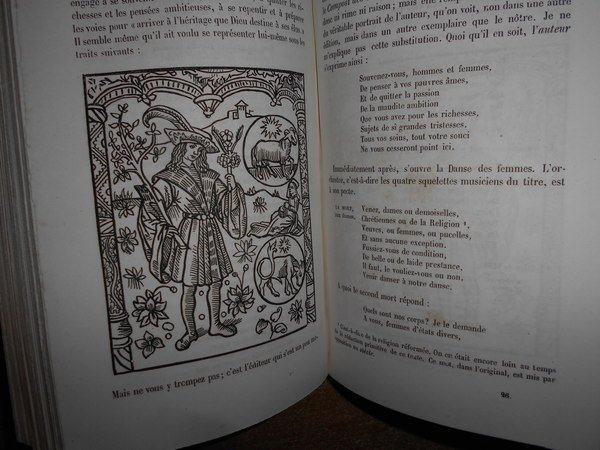 engagé à se souvenir
chesses et les pensées ambitieuses, à se repentir et à préparer
les voies pour « arriver à l'héritage que Dieu destine à ses élus. »
Il semble même qu'il ait voulu se représenter lui-même sous les
traits suivants :
Mais ne vous y trompez pas ; c'est l'éditeur qui s'est un peu
le Compost
ni rime ni raison ;
véritable portrait de l'auteur, qu'on voit, non dans une autre
édition, mais dans un autre exemplaire que le nôtre. Je ne
m'explique pas cette substitution. Quoi qu'il en soit, l'auteur
s'exprime ainsi :
Souvenez-vous, hommes et femmes,
De penser à vos pauvres âmes,
Et de quitter la passion
De la maudite ambition
Que vous avez pour les richesses,
Sujets de si grandes tristesses,
Tous vos soins, tout votre souci
Ne vous cesseront point ici.
Immédiatement après, s'ouvre la Danse des femmes. L'or-
chestre, c'est-à-dire les quatre squelettes musiciens du titre, est
à son poste.
LA MORT, Venez, dames ou demoiselles,
Chrétiennes ou de la Religion ¹,
Veuves, ou femmes, ou pucelles,
Et sans aucune exception.
Fussiez-vous de condition,
De belle ou de laide prestance,
Il faut, le vouliez-vous ou non,
Venir danser à notre danse.
A quoi le second mort répond :
Quels sont nos corps? Je le demande
A vous, femmes d'états divers,
¹ C'est-à-dire de la religion réformée. On était encore loin au temps
de la rédaction primitive de ce texte. Ce mot, dans l'original, est mis par
opposition au siècle.
26.